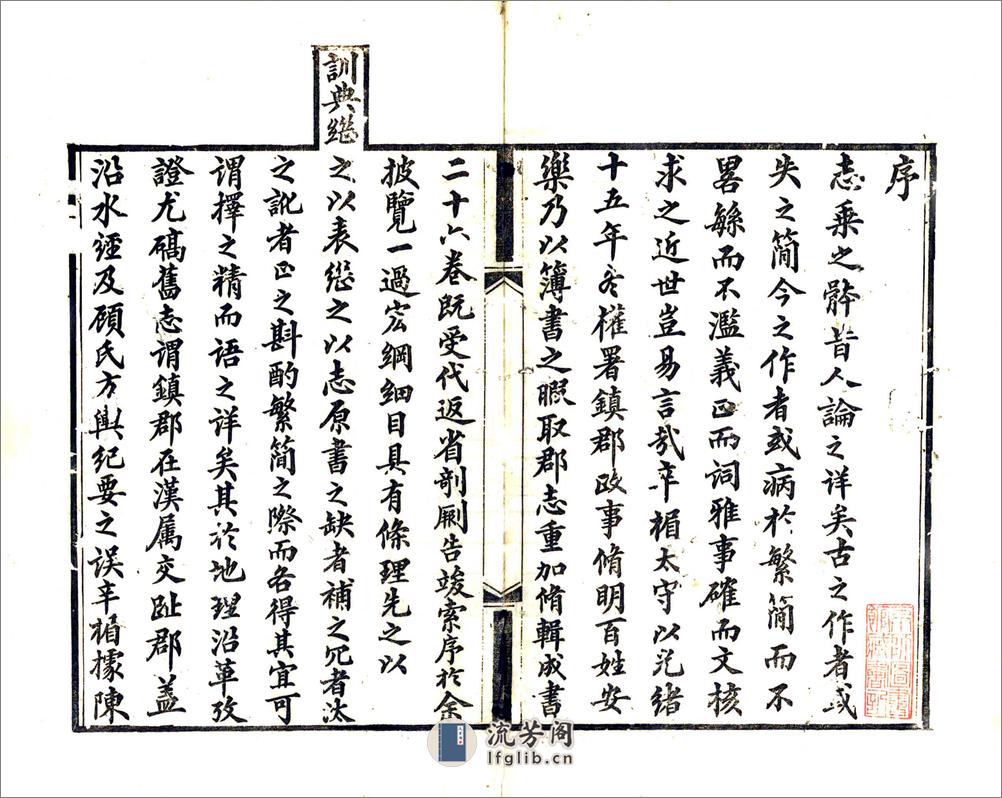 序
志乘之骵昔人論之详矣古之作者或
失之简今之作者或病於繁简而不
畧緐而不濫義正而词雅事確而文核
求之近世豈易言哉辛楣太守以光绪
十五年冬權署鎮郡政事脩明百姓安
樂乃以簿書之暇取郡志重加脩輯成書
二十六卷既受代返省剞劂告竣索序於余
披覽一過宏綱细目具有條理先之以
訓典繼之以表继之以志原書之缺者補之冗者汰
之訛者正之斟酌繁简之際而各得其宜可
谓擇之精而语之详矣其於地理沿革攷
證尤碻舊志谓鎮郡在漢属交趾郡盖
沿水經及顾氏方輿纪要之误辛楣據陳
流芳阁
lfglib.cn